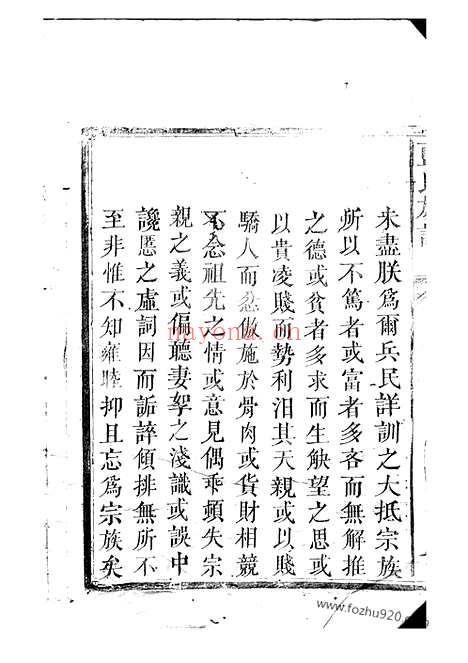 未盡朕爲爾兵民詳訓之大抵宗族
所以不篤者或富者多吝而無解推
之德或貧者多求而生觖望之思或
以貴凌賤而勢利汨其天親或以賤
驕人而忿傲施於骨肉或貨財相競
不念祖先之情或意見偶乖頓失宗
親之義或偏聽妻孥之淺識或誤中
讒慝之虛詞因而詬誶傾排無所不
至非惟不知雍睦抑且忘爲宗族矣
nayona.cn
www.fozhu920.com